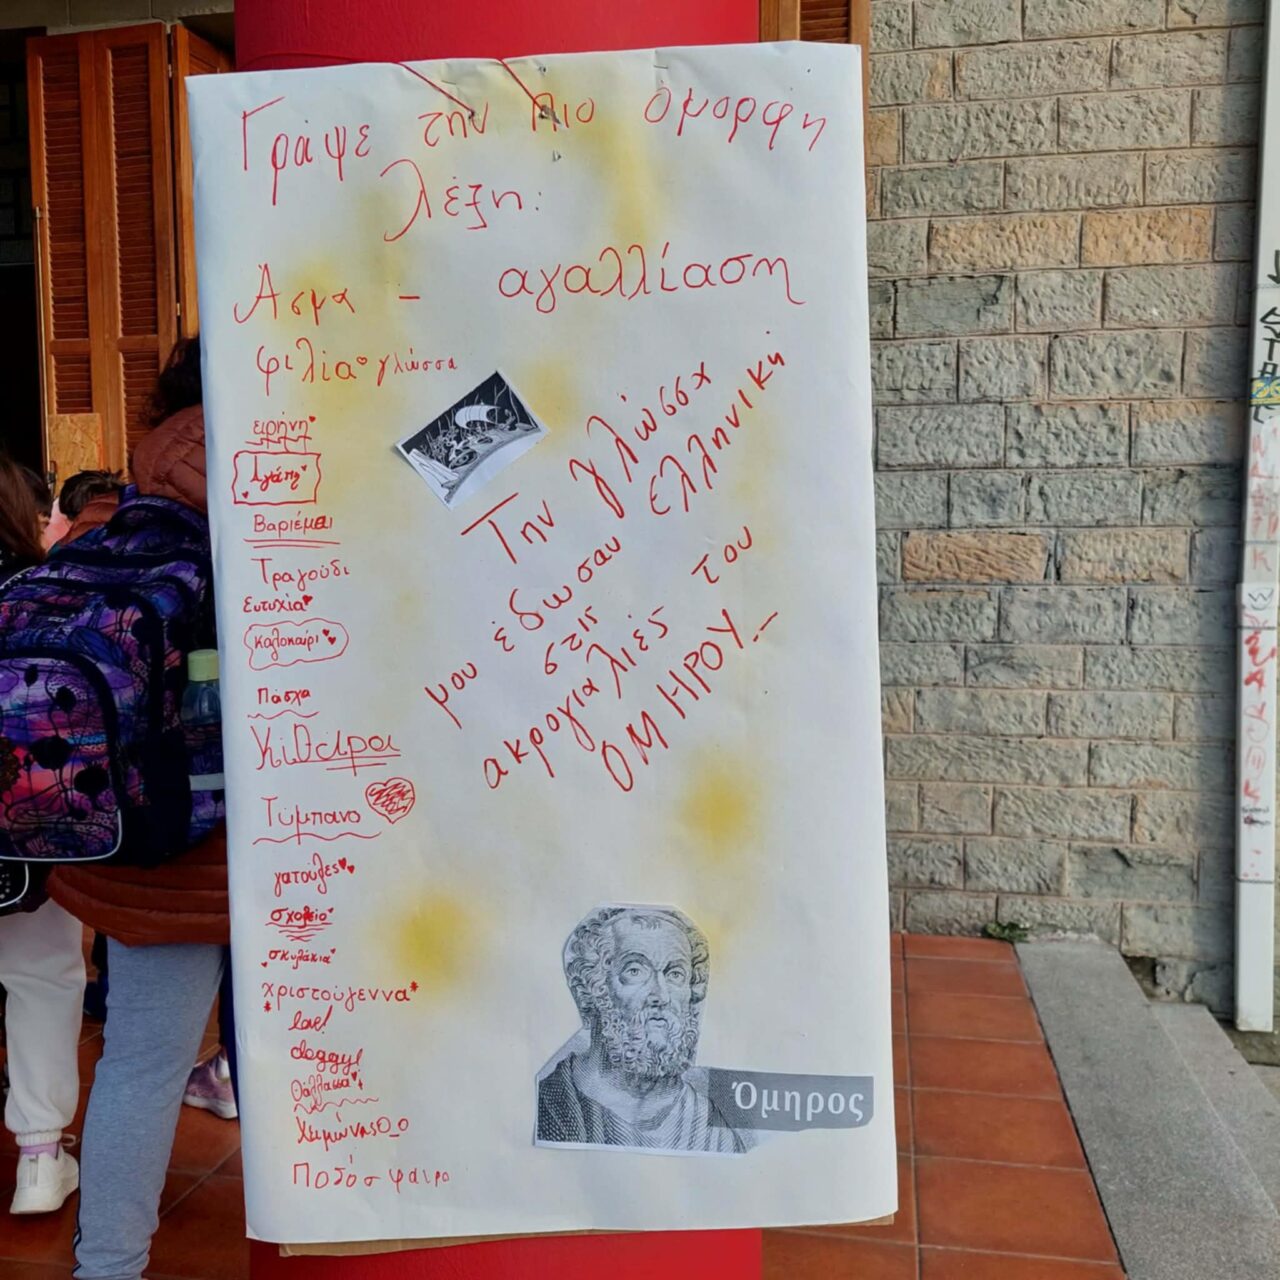 Γράψε την πιο όμορφη
λέξη:
Άσμα - αγαλλίαση
φιλία γλώσσα
ειρήνη
Αγάπη
Βαριέμαι
Τραγούδι
Ευτυχία
Καλοκαίρι
Πάσχα
Κιθάρα
Τύμπανο
γατούλες
σχολείο
σκυλάκια
*χριστούγεννα*
love!
doggy!
θάλλασα
Χειμώνας Ο_Ο
Ποδόσφαιρο
Την γλώσσα
μου έδωσαν ελληνική
στις
ακρογιαλιές του
ΟΜΗΡΟΥ...
Όμηρος